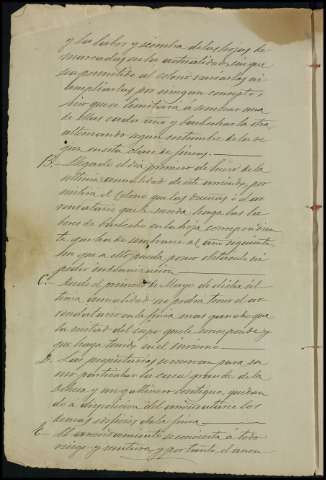 y la labor y siembra de las hojas de
marcadas en la actualidad, sin que
sea permitido al Colono variarlas ni
ampliarlas por ningun concepto,
sino que se limitará á sembrar una
de ellas cada año y barbechar la otra
alternando segun costumbre de la
en esta clase de fincas.
B. Llegado el dia primero de Enero de la
ultima anualidad de este arriendo, per
mitirá el Colono que los dueños ó el ar
rendatario que le suceda, haga las la
bores de barbecho en la hoja correspondien
te que ha de sembrarse el año siguiente
sin que á ello pueda poner obstáculo ni
pedir indemnizacion.
C. Desde el primero de Marzo de dicha úl
tima anualidad no podrá tener el ar
rendatario en la finca mas ganado que
la mitad del cupo que le corresponde y
que haya tenido en el invierno.
D. Los propietarios se reservan para su
uso particular la casa grande de la
dehesa y contigua, quedan
do á disposicion del arrendatario los
demas edificios de la finca.
E. El arrendamiento se concierta á todo
riesgo y ventura y por tanto el arren